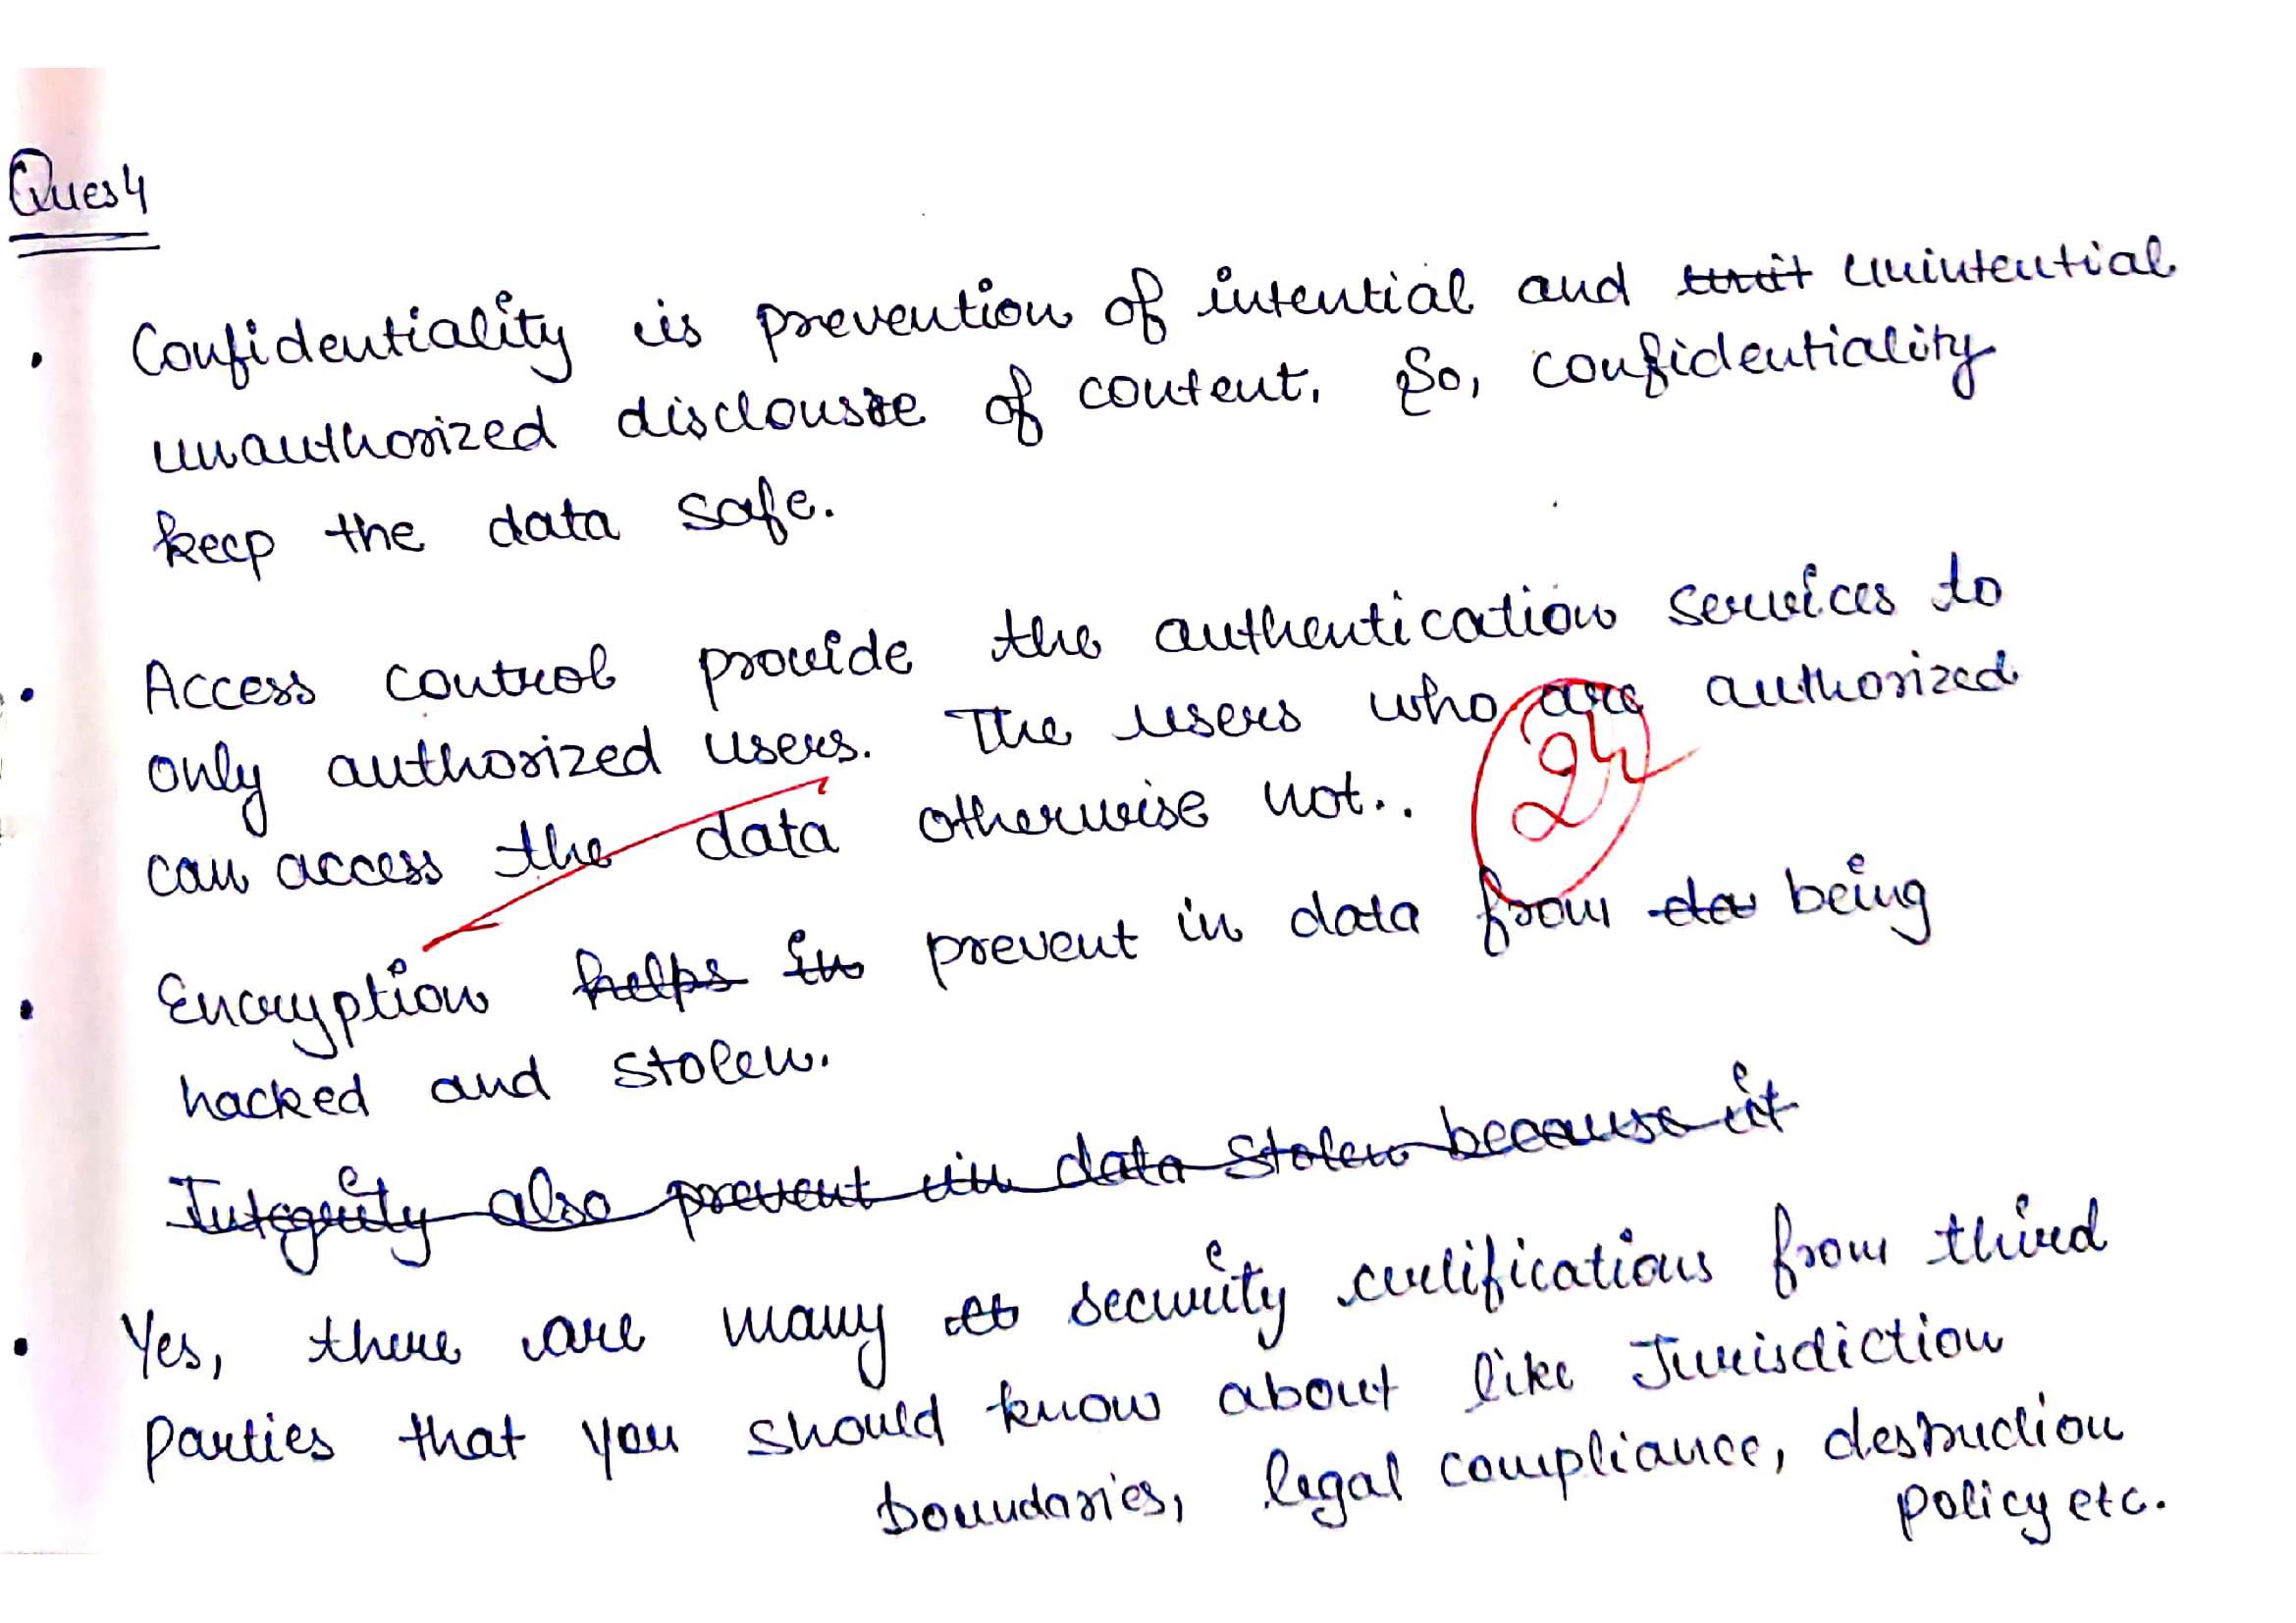 Ques 4
• Confidentiality is prevention of intential and unintential
unauthorized disclousre of content. So, confidentiality
keep the data safe.
• Access control provide the authentication services to
only authorized users. The users who are authorized
can access the data otherwise not..
• Encryption helps in prevent in data from da being
hacked and stolen.
Integrity also prevent in data stolen because it
• Yes, there are many security certifications from third
parties that you should know about like Jurisdiction
boundaries, legal compliance, destruction
policy etc.